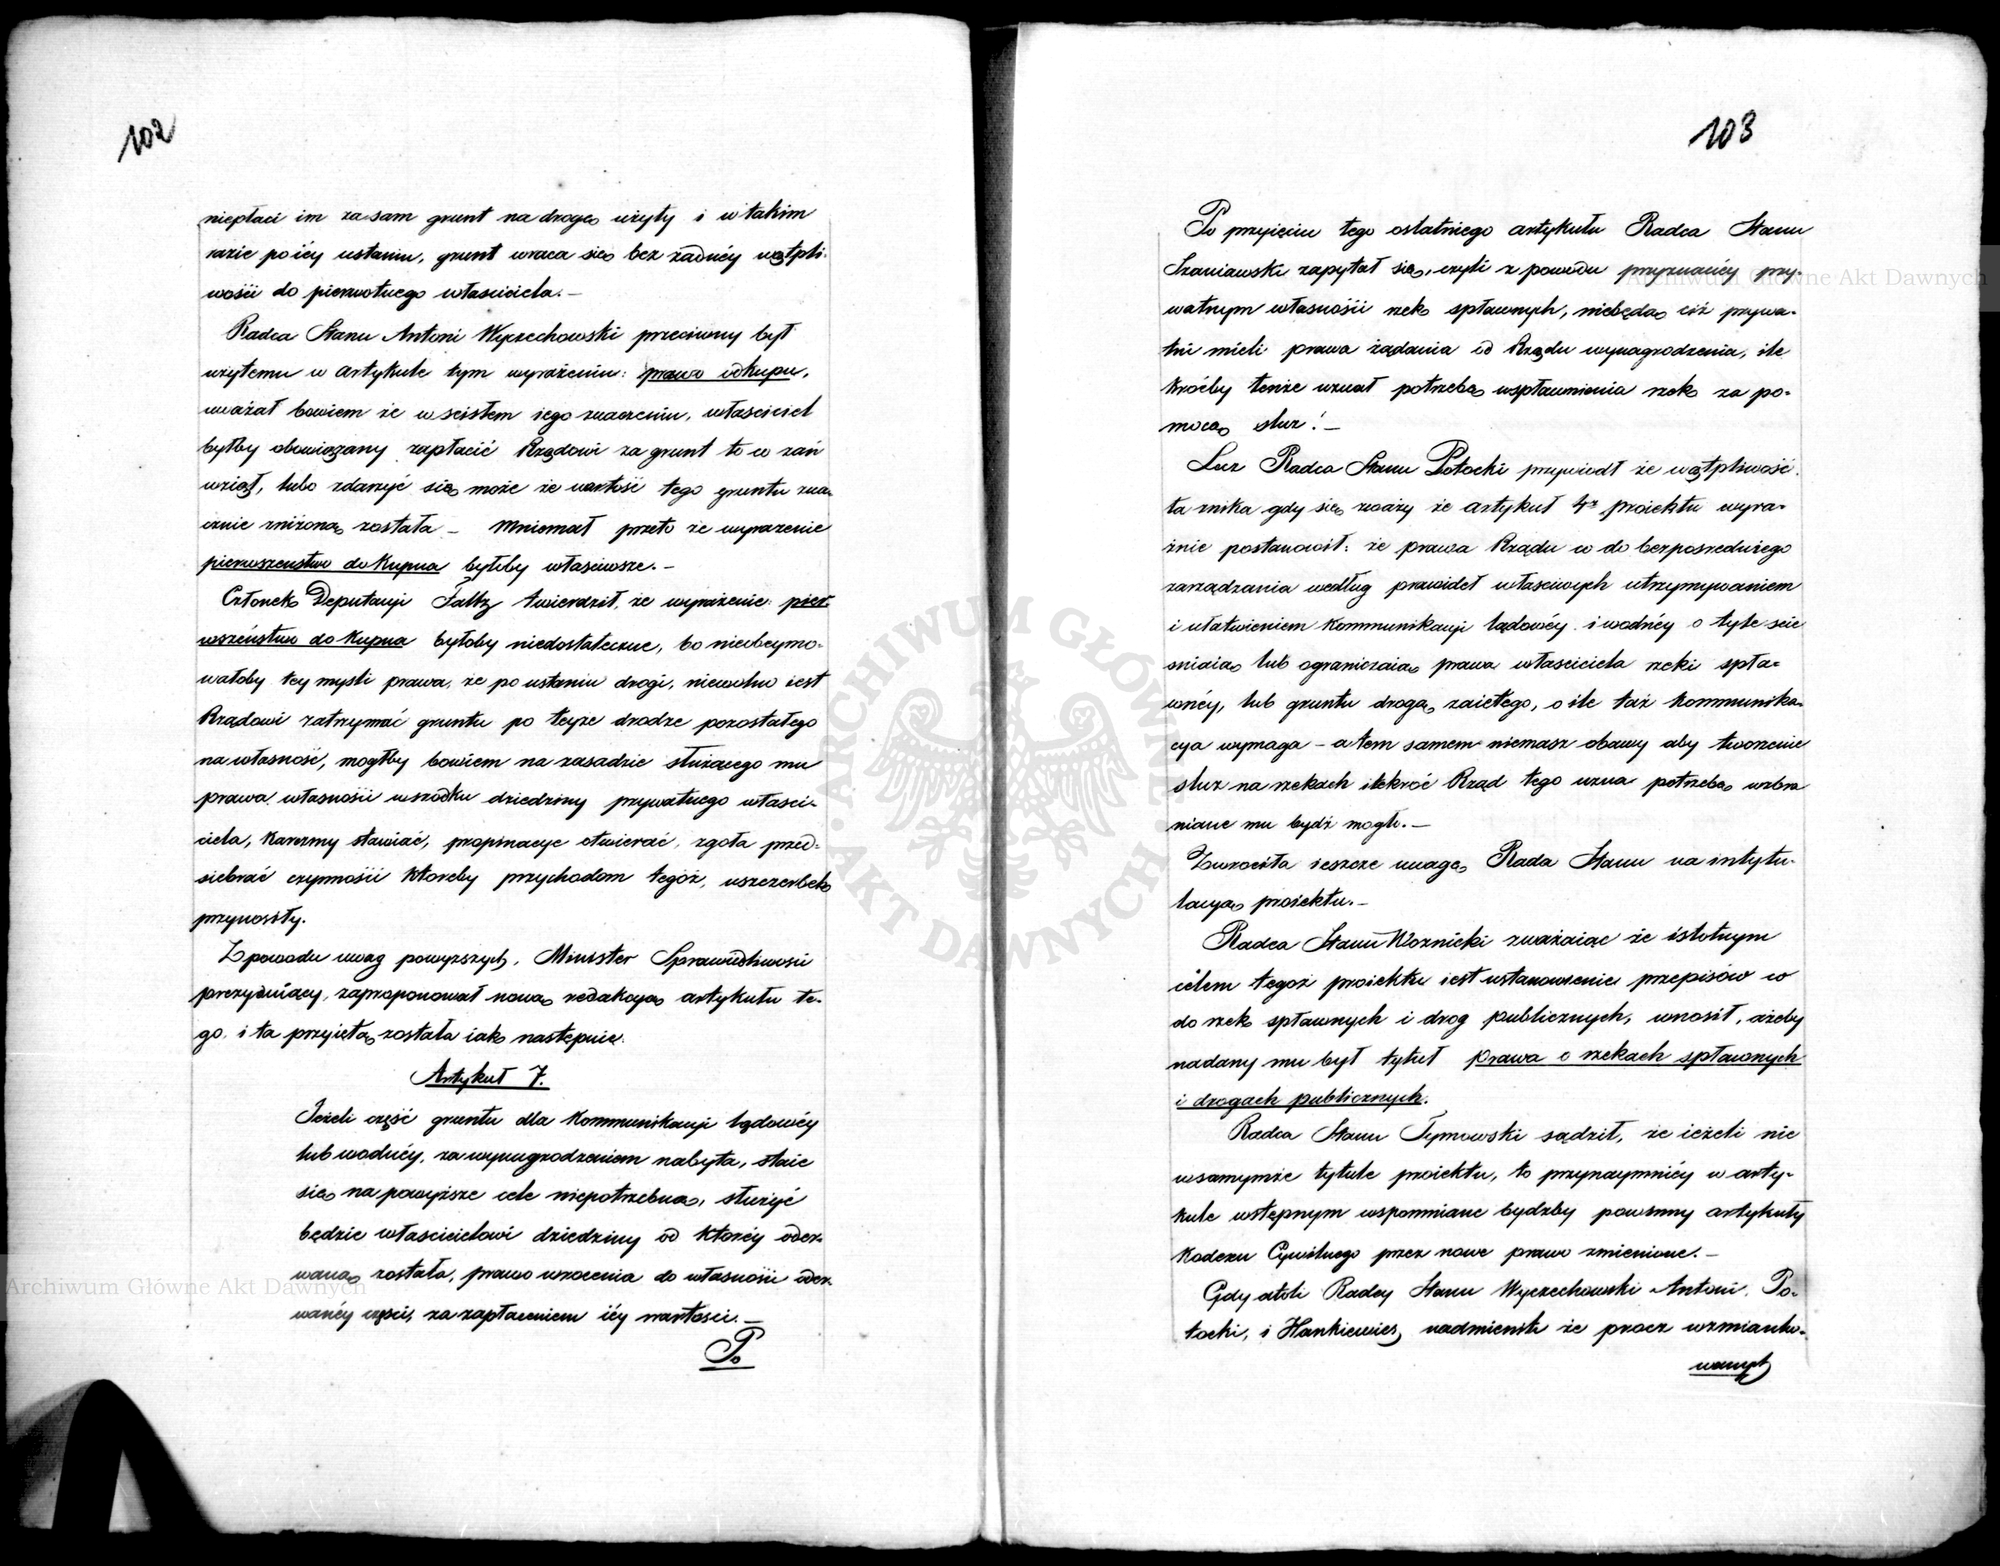 102
niepłaci im za sam grunt na drogę użyty i w takim
razie po iéy ustaniu, grunt wraca się bez żadnéy wątpli-
wości do pierwotnego właściciela.—
Radca Stanu Antoni Wyczechowski przeciwny był
użytemu w artykule tym wyrażeniu: prawo odkupu,
uważał bowiem że w scisłem iego znaczeniu, właściciel
byłby obowiązany zapłacić Rządowi za grunt to co zań
wziął, lubo zdarzyć się może że wartość tego gruntu zna-
cznie zniżoną została — Mniemał przeto że wyrażenie
pierwszeństwo do kupna byłoby właściwsze.—
Członek Deputacyi Faltz twierdził, że wyrażenie: pier-
wszeństwo do kupna byłoby niedostateczne, bo nieobeymo-
wałoby tey myśli prawa, że po ustaniu drogi, niewolno iest
Rządowi zatrzymać gruntu po teyże drodze pozostałego
na własność, mógłby bowiem na zasadzie służącego mu
prawa własności wśrodku dziedziny prywatnego właści-
ciela, karczmy stawiać, propinacye otwierać, zgoła przed-
siebrać czynności któreby przychodom tegoż, uszczerbek
przynosiły.
Z powodu uwag powyższych, Minister Sprawiedliwości
prezyduiący, zaproponował nową redakcyą artykułu te-
go, i ta przyiętą została iak następuie.
Artykuł 7.
Jeżeli część gruntu dla kommunikacyi lądowéy
lub wodnéy, za wynagrodzeniem nabyta, staie
się na powyższe cele niepotrzebną, służyć
będzie właścicielowi dziedziny od któréy oder-
waną została, prawo wrócenia do własności oder-
wanéy części, za zapłaceniem iéy wartości.—
Po
103
Po przyięciu tego ostatniego artykułu Radca Stanu
Szaniawski zapytał się, czyli z powodu przyznanéy pry-
watnym własności rzek spławnych, niebędą ciż prywa-
tni mieli prawa żądania od Rządu wynagrodzenia, ile
kroćby tenże uznał potrzebę uspławnienia rzek za po-
mocą sluz!—
Lecz Radca Stanu Potocki przywiódł że wątpliwość
ta znika gdy się zważy że artykuł 4y proiektu wyra-
źnie postanowił: że prawa Rządu co do bezpośredniego
zarządzania według prawideł właściwych utrzymywaniem
i ułatwieniem kommunikacyi lądowéy i wodnéy o tyle scie
śniaią lub ograniczaią prawa właściciela rzeki spła-
wnéy, lub gruntu drogą zaiętego, o ile taż kommunika-
cya wymaga — a tem samem niemasz obawy aby tworzenie
sluz na rzekach ilekroć Rząd tego uzna potrzebę, wzbra
niane mu bydź mogło.—
Zwróciła ieszcze uwagę Rada Stanu na intytu-
lacyą proiektu.—
Radca Stanu Woznicki zważaiąc że istotnym
celem tegoż proiektu iest ustanowienie przepisów co
do rzek spławnych i dróg publicznych, wnosił, ażeby
nadany mu był tytuł prawa o rzekach spławnych
i drogach publicznych.
Radca Stanu Tymowski sądził, że ieżeli nie
w samymże tytule proiektu, to przynaymniéy w arty-
kule wstępnym wspomniane bydźby powinny artykuły
Kodexu Cywilnego przez nowe prawo zmienione.—
Gdy atoli Radcy Stanu Wyczechowski Antoni, Po-
tocki, i Hankiewicz, nadmienili że prócz wzmianko-
wanych